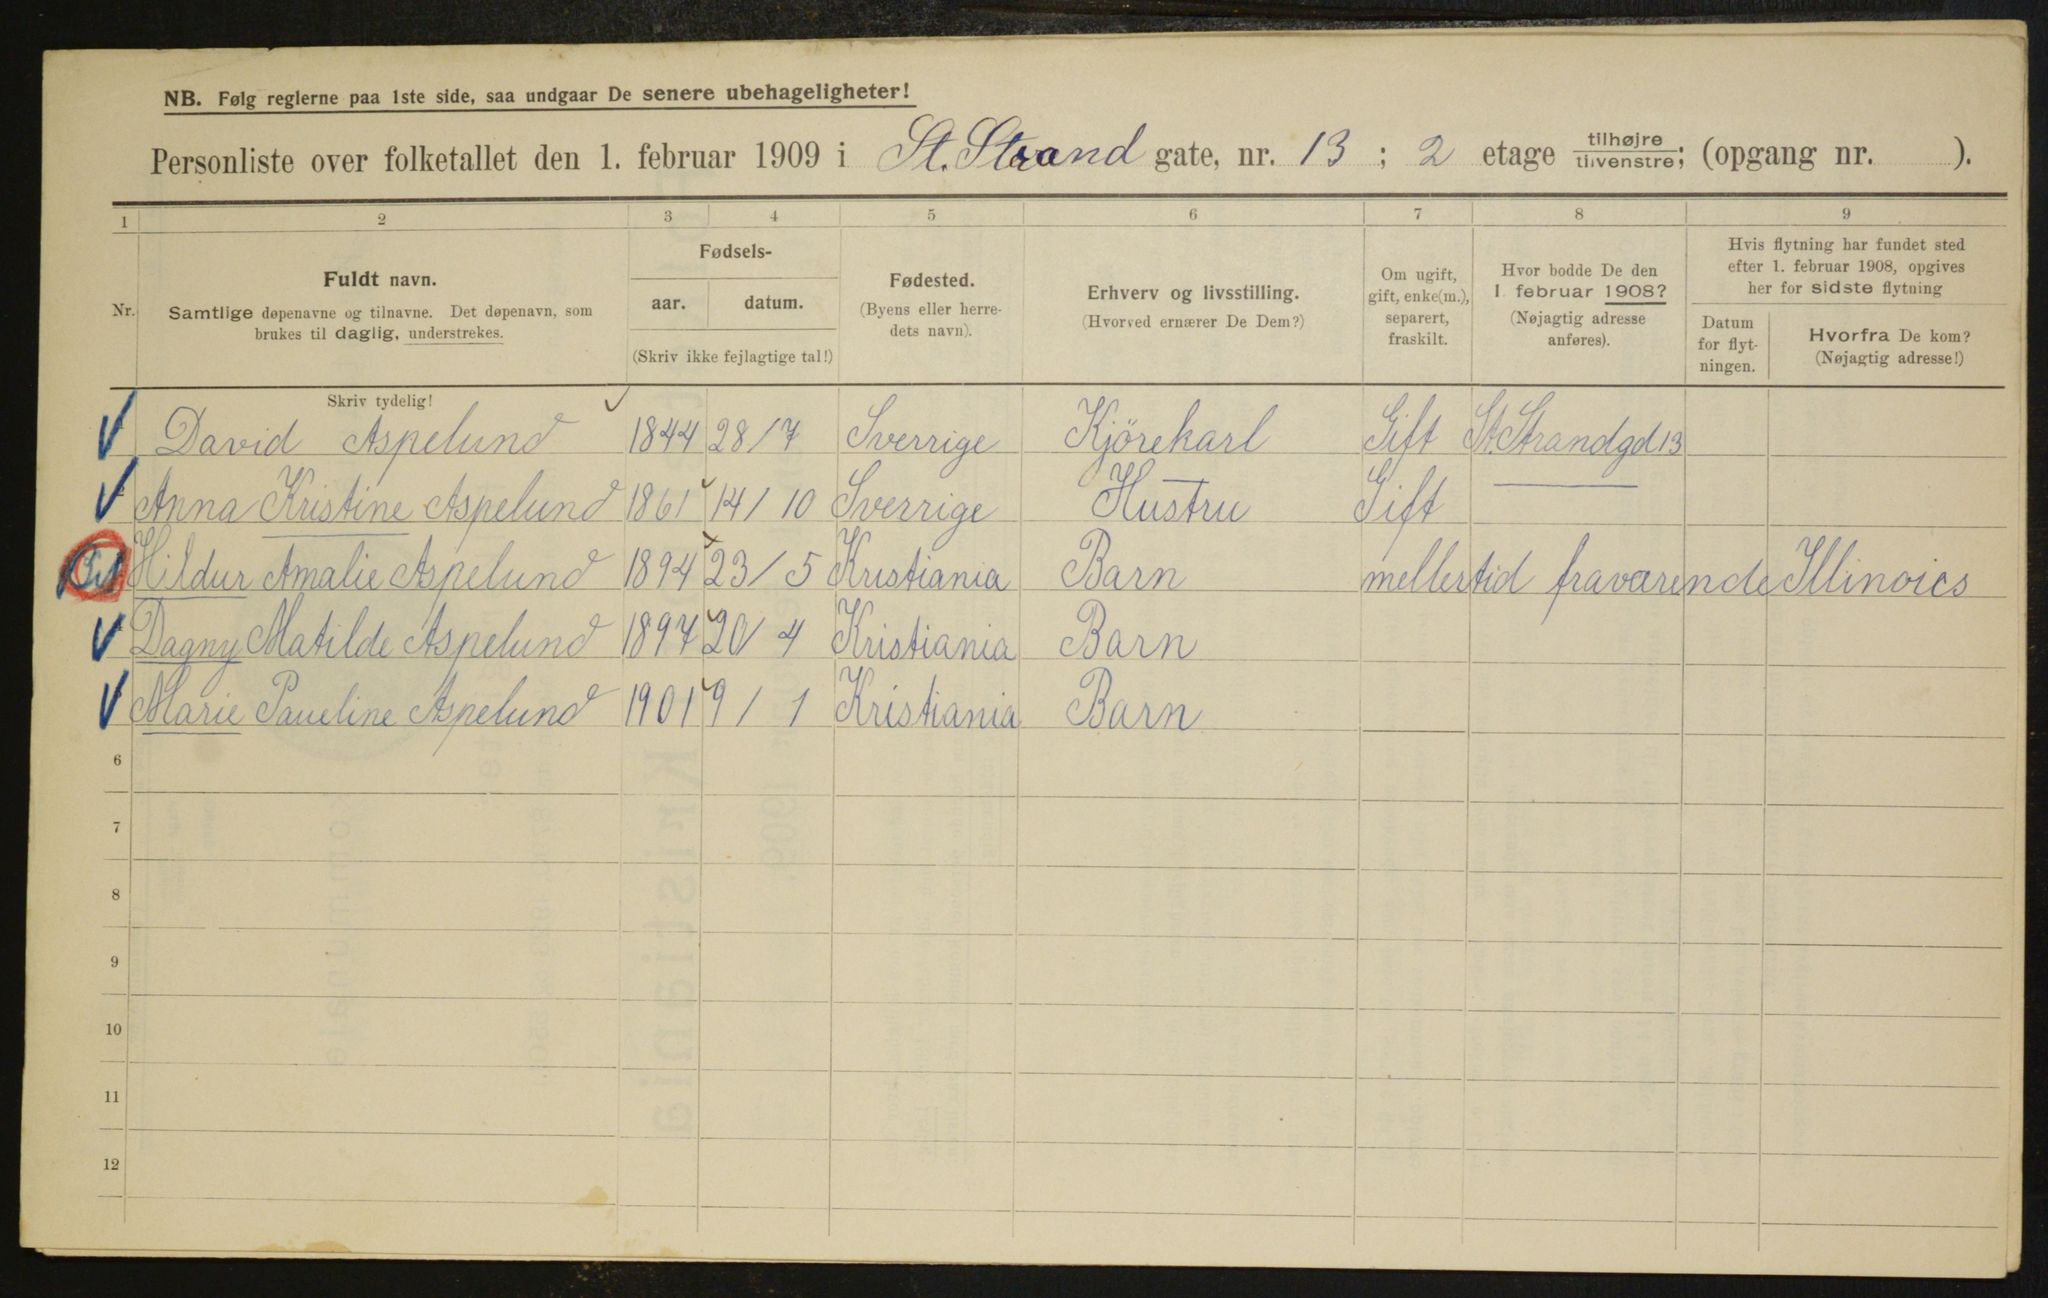 NB. Følg reglerne paa 1ste side, saa undgaar De senere ubehageligheter!
Personliste over folketallet den 1. februar 1909 i St. Strand gate, nr. 13 ; 2 etage tilhøjre tilvenstre; (opgang nr. ).
1 2 3 4 5 6 7 8 9
Nr.
Fuldt navn.
Samtlige døpenavne og tilnavne. Det døpenavn, som
brukes til daglig, understrekes.
Fødsels-
aar. datum.
(Skriv ikke fejlagtige tal!)
Fødested.
(Byens eller herre-
dets navn).
Erhverv og livsstilling.
(Hvorved ernærer De Dem?)
Om ugift,
gift, enke(m.),
separert,
fraskilt.
Hvor bodde De den
1 februar 1908?
(Nøjagtig adresse
anføres).
Hvis flytning har fundet sted
efter 1. februar 1908, opgives
her for sidste flytning
Datum
for flyt-
ningen.
Hvorfra De kom?
(Nøjagtig adresse!)
Skriv tydelig!
David Aspelund 1844 28/7 Sverrige Kjörekarl Gift St. Strandgd 13
Anna Kristine Aspelund 1861 14/10 Sverrige Hustru Gift
Hildur Amalie Aspelund 1894 23/5 Kristiania Barn mellertid fraværende Illinoies
Dagny Matilde Aspelund 1897 20/4 Kristiania Barn
Marie Paueline Aspelund 1901 9/1 Kristiania Barn
6
7
8
9
10
11
12